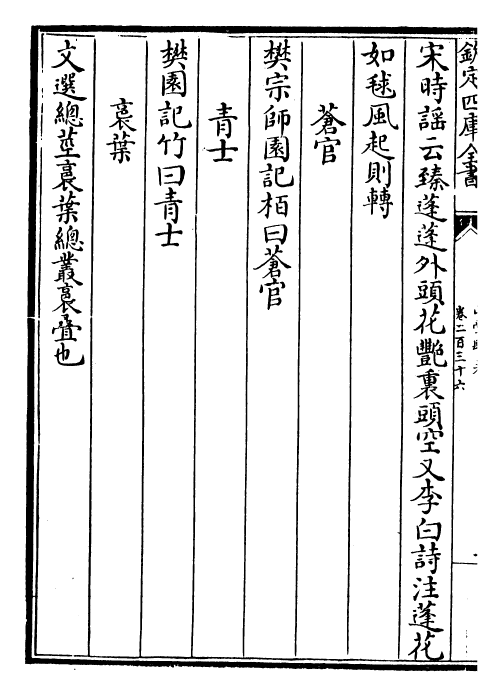 欽定四庫全書
卷二百三十六
宋時謡云臻蓬蓬外頭花艷裏頭空又李白詩注蓬花
如毬風起則轉
蒼官
樊宗師園記栢曰蒼官
青士
樊園記竹曰青士
裛葉
文選總莖裛葉總叢裛疊也